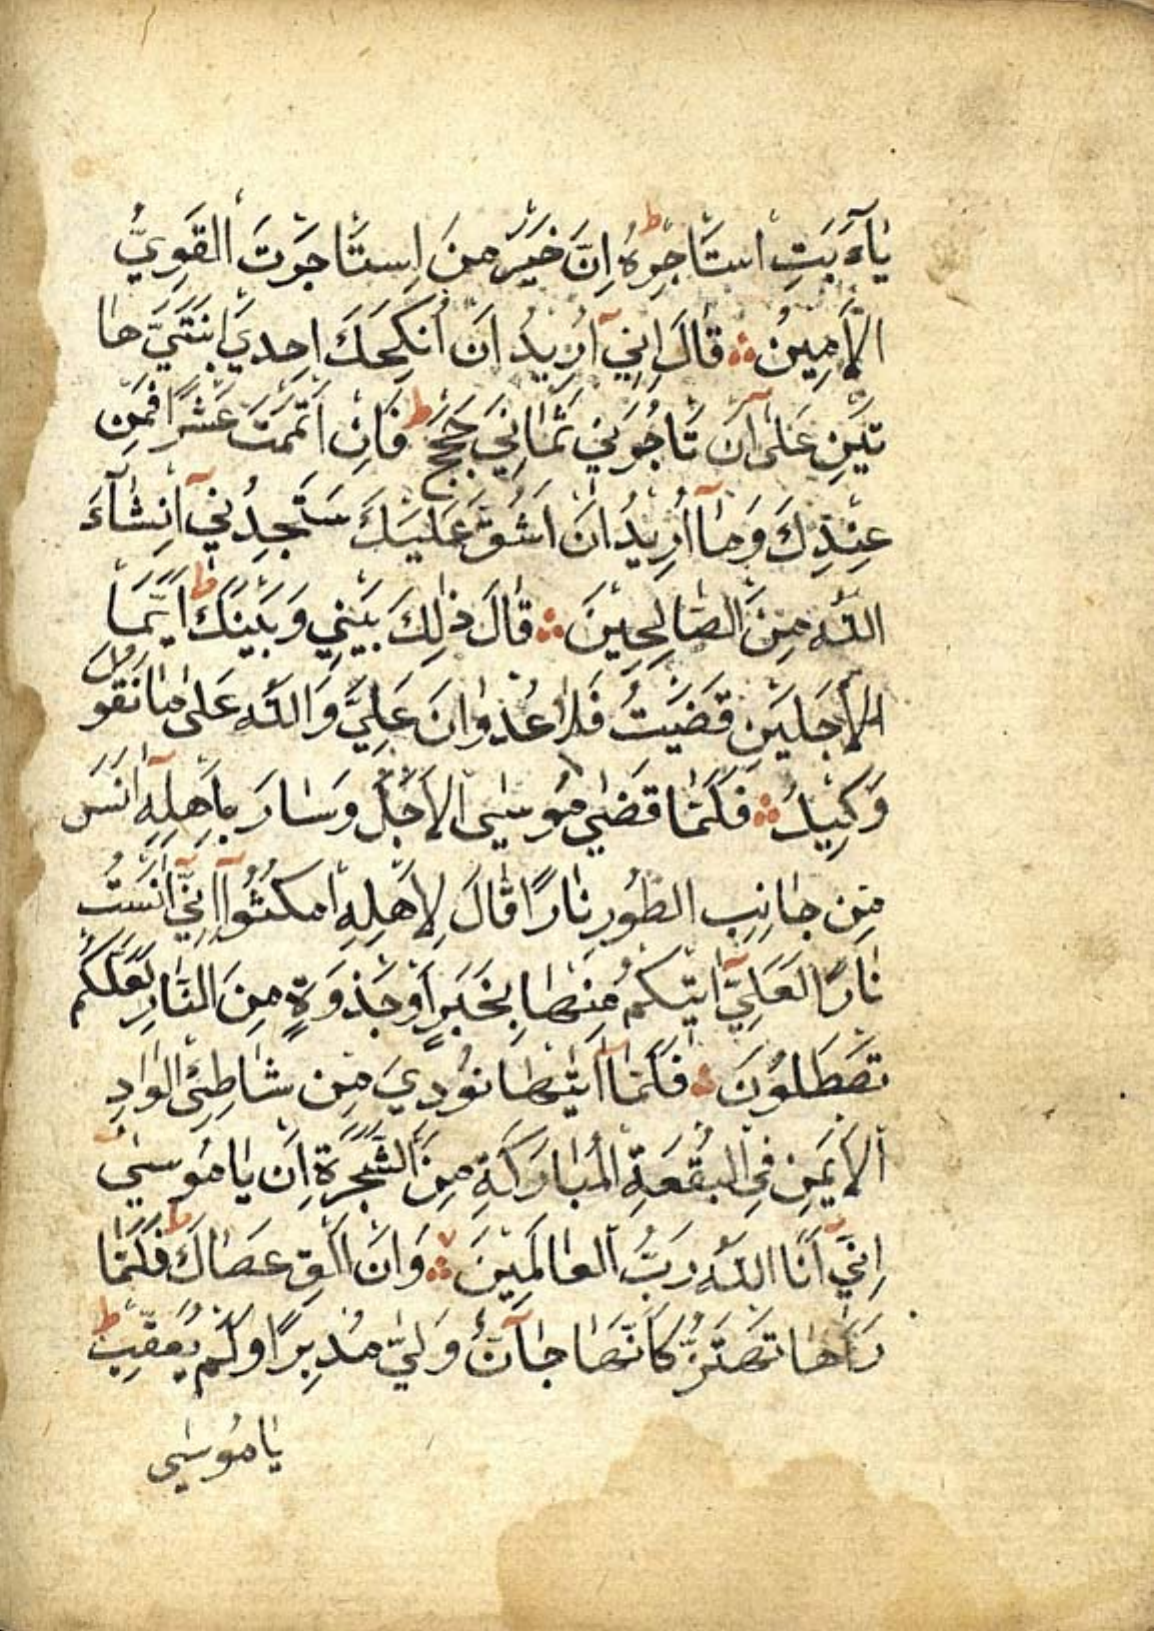 يَاآَبَتِ اسْتَاجِرْهُ ط اِنَّ خَيْرَ مَنِ اِسْتَاجَرْتَ الْقَوِيُّ
الْاَمِينُ ۞ قَالَ اِنِّيٓ اُرِيدُ اَنْ اُنْكِحَكَ اِحْدَي ابْنَتَيَّ هَا
تَيْنِ عَلَىٓ اَنْ تَاجُرَنِي ثَمَانِيَ حِجَجٍ ط فَاِنْ اَتْمَمْتَ عَشْرًا فَمِنْ
عِنْدِكَ وَمَآ اُرِيدُ اَنْ اَشُقَّ عَلَيْكَ سَتَجِدُنِيٓ اِنْشَآءَ
اللّٰه مِنَ الصَّالِحِينَ ۞ قَالَ ذٰلِكَ بَيْنِي وَبَيْنَكَ ط اَيَّمَا
الْاَجَلَيْنِ قَضَيْتُ فَلَا عُدْوَانَ عَلَيَّ وَاللّٰه عَلٰى مَا نَقُولُ
وَكِيلٌ ۞ فَلَمَّا قَضٰي مُوسٰى الْاَجَلَ وَسَارَ بِاَهْلِهِٓ اٰنَسَ
مِنْ جَانِبِ الطُّورِ نَارًا قَالَ لِاَهْلِهِ امْكُثُوآ اِنِّيٓ اٰنَسْتُ
نَارًا لَعَلِّيٓ اٰتِيكُمْ مِنْهَا بِخَبَرٍ اَوْ جَذْوَةٍ مِنَ النَّارِ لَعَلَّكُمْ
تَصْطَلُونَ ۞ فَلَمَّآ اَتٰيهَا نُودِيَ مِنْ شَاطِئِ الْوَادِ
الْاَيْمَنِ فِي الْبُقْعَةِ الْمُبَارَكَةِ مِنَ الشَّجَرَةِ اَنْ يَا مُوسٰىٓ
اِنِّيٓ اَنَا اللّٰه رَبُّ الْعَالَمِينَ ۞ وَاَنْ اَلْقِ عَصَاكَ ط فَلَمَّا
رَاٰهَا تَهْتَزُّ كَاَنَّهَا جَآنٌّ وَلّٰي مُدْبِرًا وَلَمْ يُعَقِّبْ ط
يَا مُوسٰى